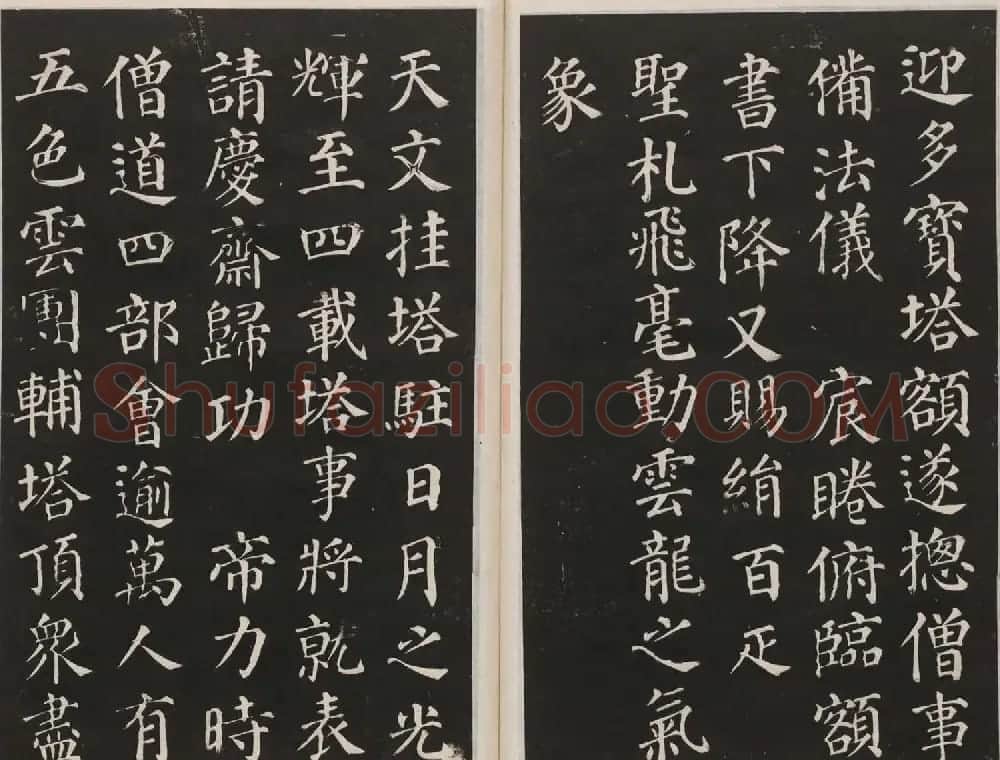 迎多寶塔額遂摠僧事
備法儀 宸睠俯臨額
書下降又賜絹百疋
聖札飛毫動雲龍之氣
象
天文挂塔駐日月之光
輝至四載塔事將就表
請慶齋歸功 帝力時
僧道四部會逾萬人有
五色雲團輔塔頂衆盡
Shufaziliao.COM